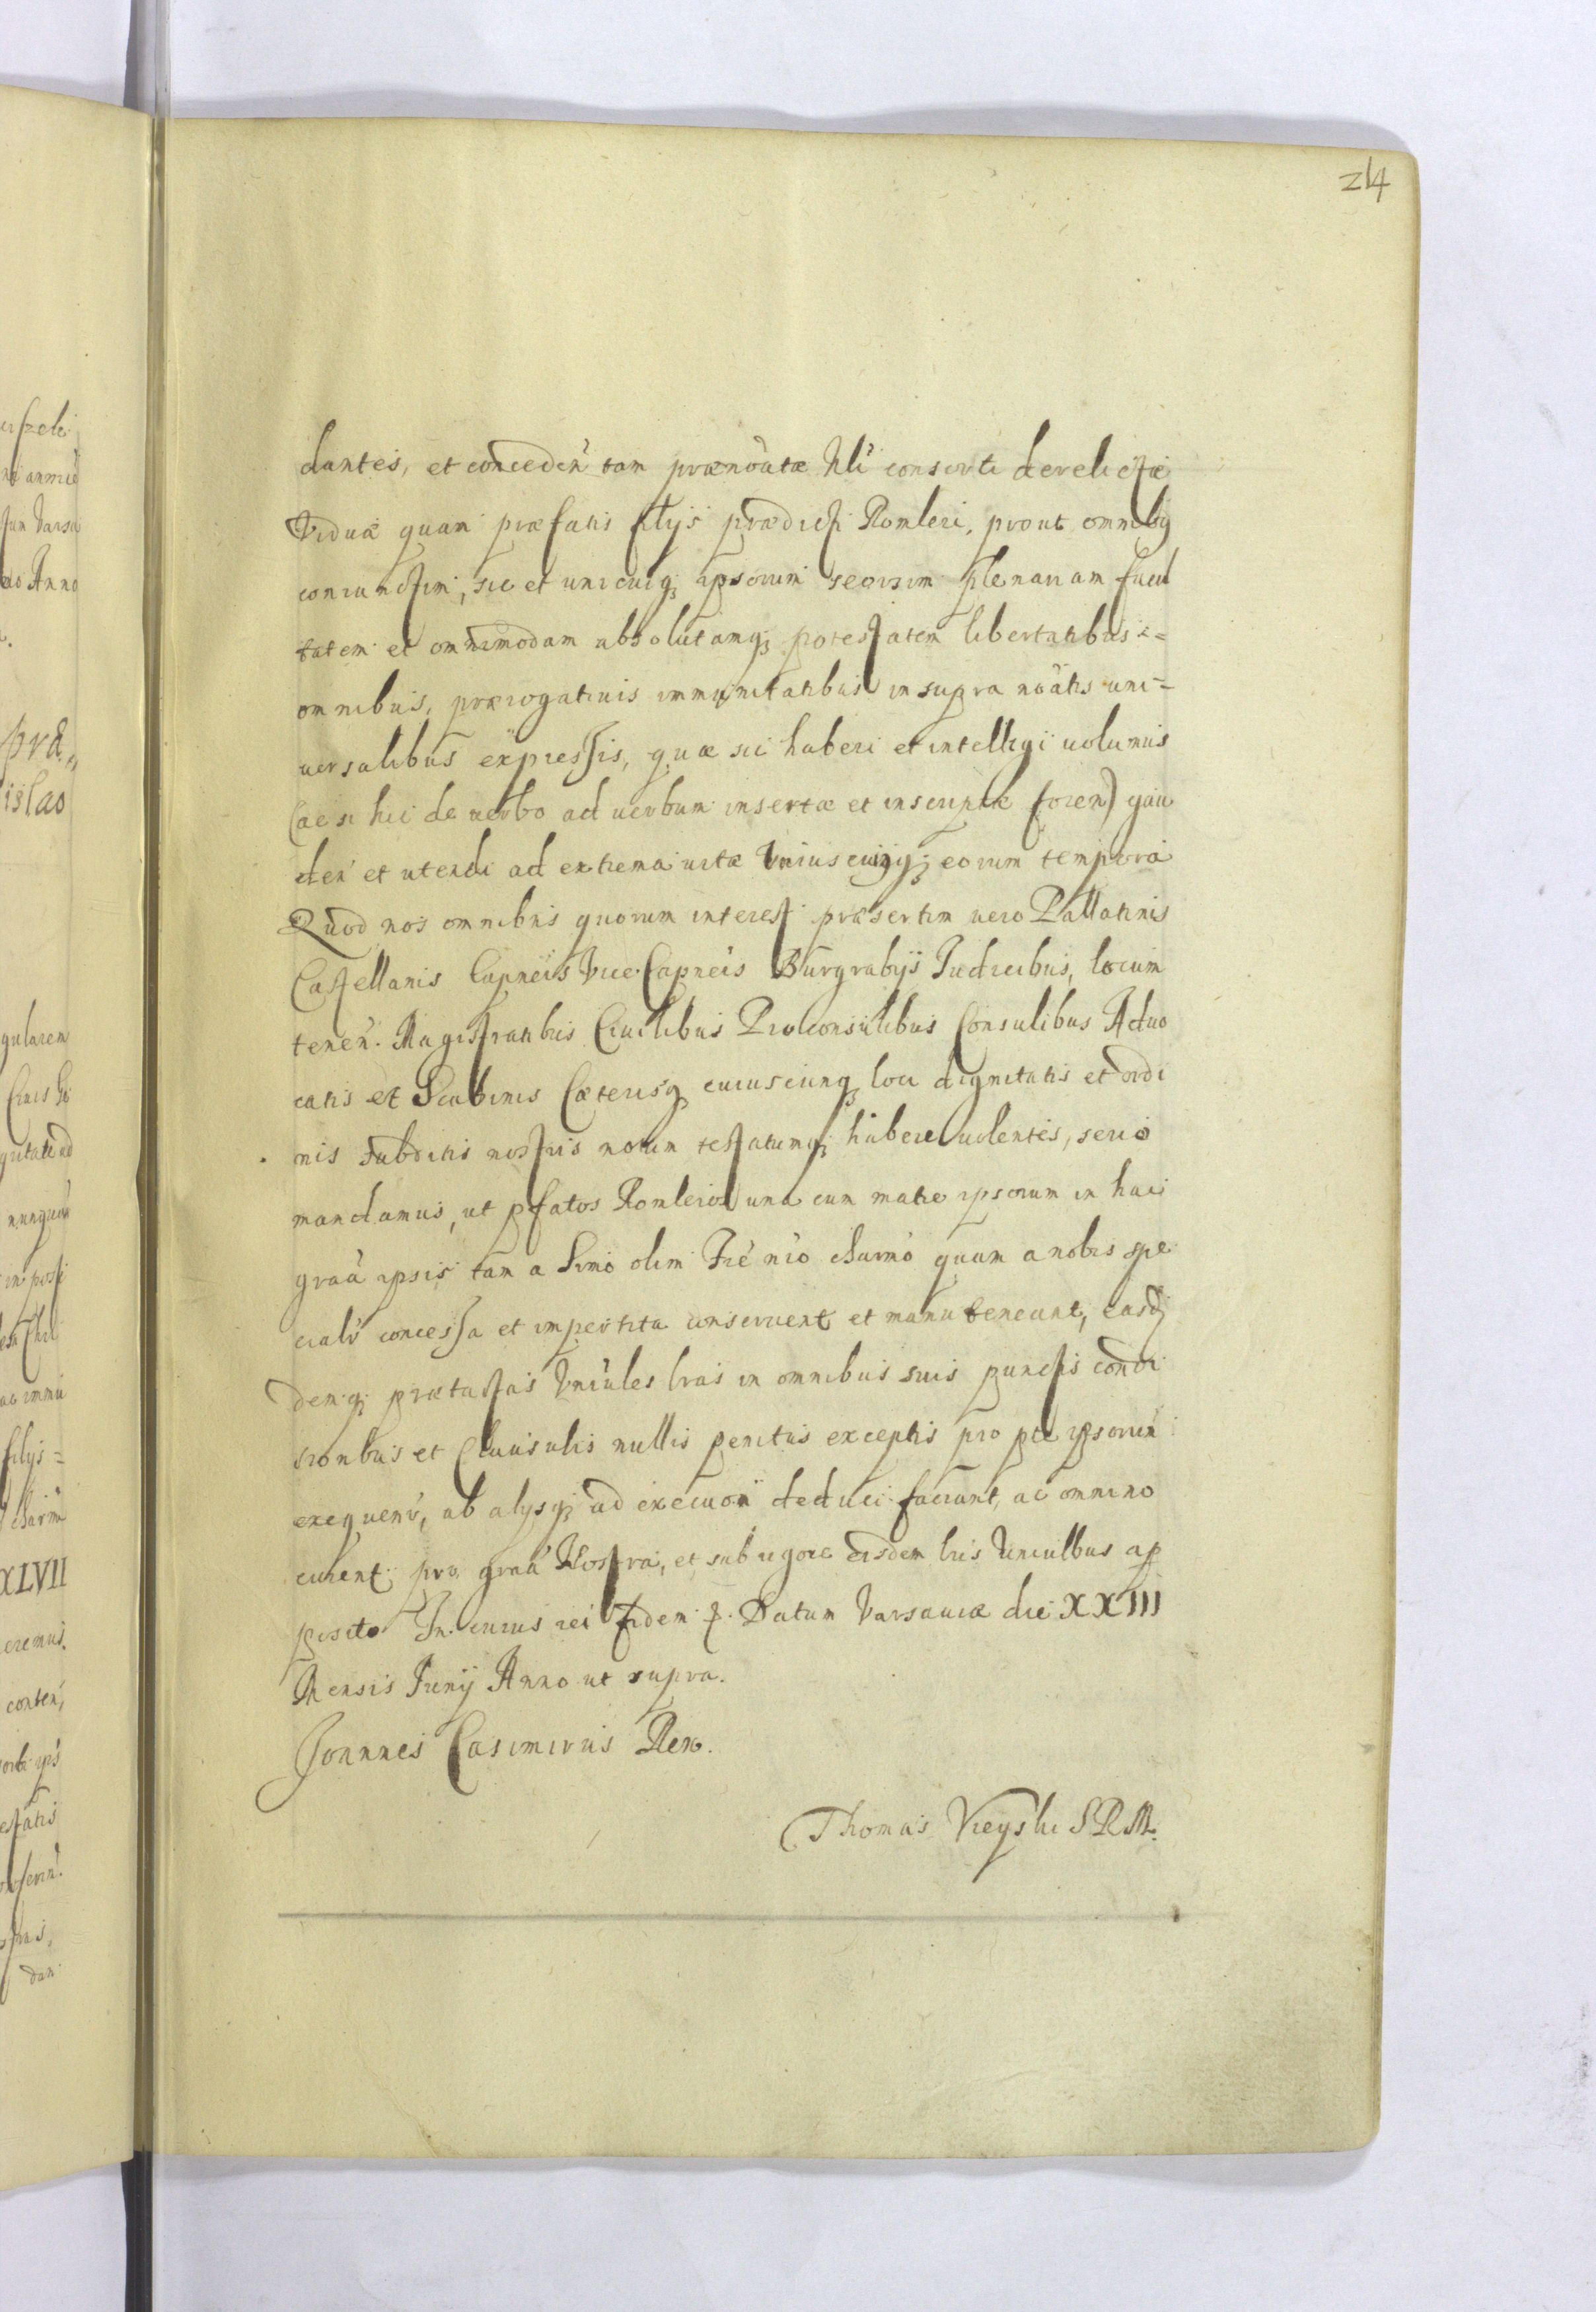 214
dantes, et conceden̄ tam prænoatæ Uli consorti derelictæ
Viduæ quam præfatis filijs prædicti Romleri, prout omnibꝫ
coniunctim, sic et unicuiqꝫ ipsorum seorsim plenariam facul
tatem et omnimodam absolutamqꝫ potestatem libertatibus =
omnibus, prærogatiuis immunitatibus in supra noatis uni=
uersalibus expressis, quæ sic haberi et intelligi uolumus
(ac si hic de uerbo ad uerbum insertæ et inscriptæ forent) gau
den̄ et utendi ad extrema uitæ Uniuscuiusqꝫ eorum tempora
Quod nos omnibus quorum interest præsertim uero Pallatinis
Castellanis Capneis Vice Capneis Burgrabijs Judicibus, locum
tenen̄. Magistratibus Ciuilibus Proconsulibus Consulibus Aduo
catis et Scabinis Cæterisqꝫ cuiuscunqꝫ loci dignitatis et ordi
nis subditis nostris notum testatumqꝫ habere uolentes, serio
mandamus, ut pfatos Romleros una cum matre ipsorum in hac
graā ipsis tam a Srmo olim Fre nro charmo quam a nobis spe
cialr concessa et impertita conseruent et manuteneant, eas
demqꝫ prætactas Uniules lras in omnibus suis punctis condi
tionibus et Clausulis nullis penitus exceptis pro pte ipsorum
exequent, ab alijsqꝫ ad execuon deduci faciant, ac omnino
curent, pro graā Nostra, et sub rigore eisdem lris Uniulbus ap
posito In cuius rei fidem &. Datum Varsauiæ die XXIII
Mensis Junij Anno ut supra.
Joannes Casimirus Rex.
Thomas Vieyski S R M.
XLVII